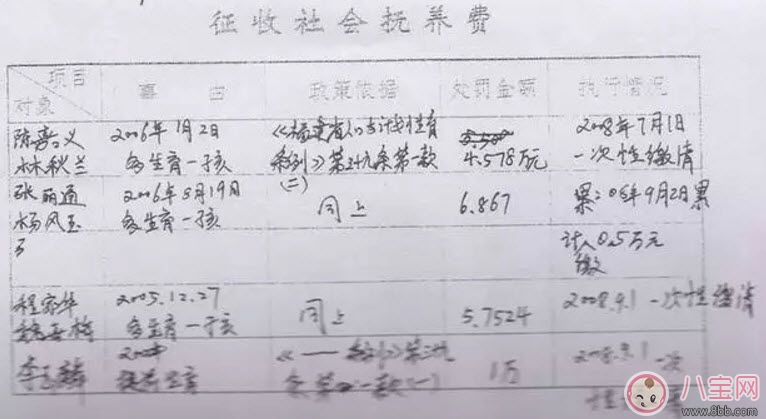 征收社会抚养费
项目
对象
事由
政策依据
处罚金额
执行情况
陈嘉义
林秋兰
2006年1月2日
多生育一孩
《福建省人口与计划生育
条例》第三十九条第一款
(二)
4.578万元
2008年7月1日
一次性缴清
张丽通
杨凤玉
2006年8月19日
多生育一孩
同上
6.867
累:06年9月2日累
计入0.5万元
缴
程家华
2005.12.27
多生育一孩
同上
5.7524
2008.9.1 一次性缴清
提前生育
1万
2008.9.1 一次
八宝网
www.8bb.com